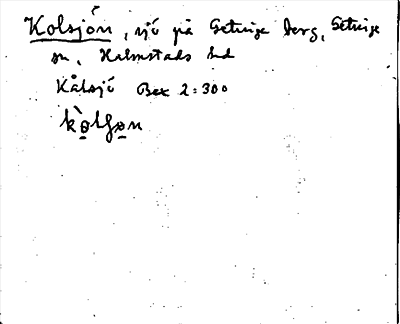 Kolsjön, sjö på Getinge berg, Getinge
sn, Halmstads hd
Kålsjö Box 2:300